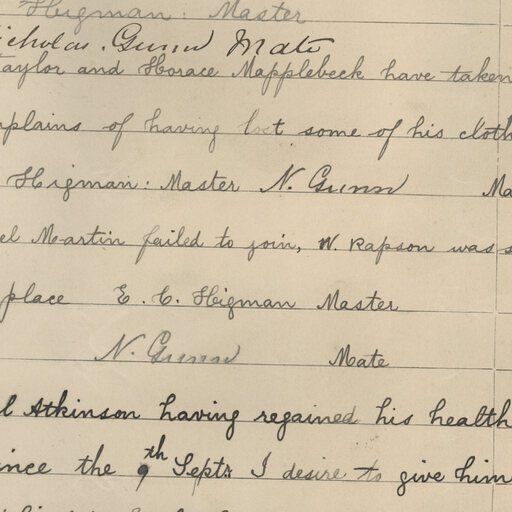 Higman: Master
icholas. Gunn Mate
Taylor and Horace Mapplebeck have taken
mplains of having lost some of his cloth
Higman: Master N. Gunn Ma
el Martin failed to join, W. Rapson was s
place E. C. Higman Master
N. Gunn Mate
l Atkinson having regained his health
ince the 9th Sept: I desire to give him